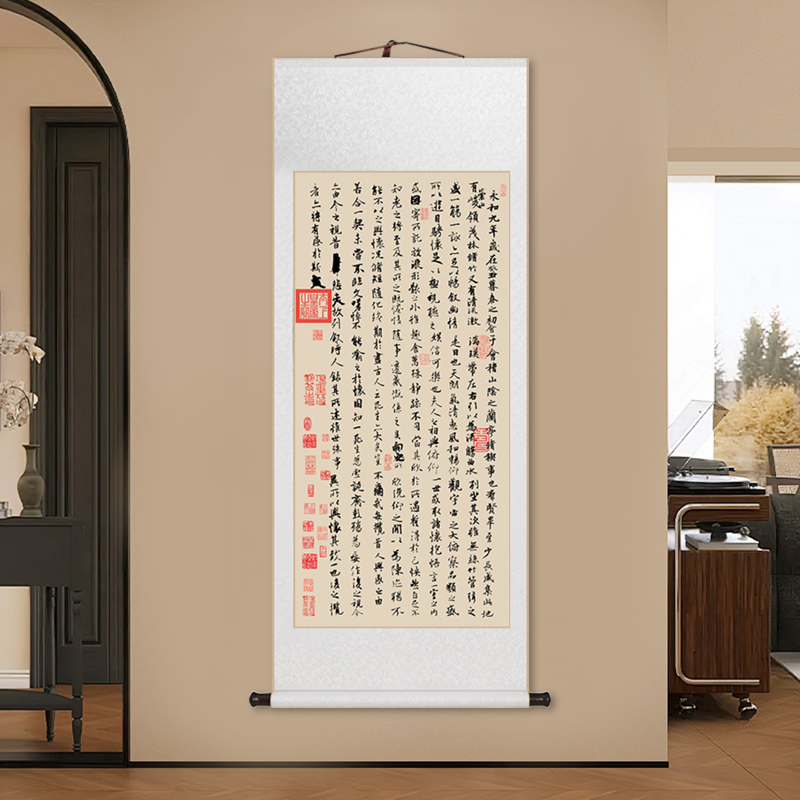 永和九年歲在癸丑暮春之初會于會稽山陰之蘭亭脩稧事也群賢畢至少長咸集此地
有崇山峻領茂林脩竹又有清流激湍暎帶左右引以為流觴曲水列坐其次雖無絲竹管弦之
盛一觴一詠亦足以暢敘幽情是日也天朗氣清惠風和暢仰觀宇宙之大俯察品類之盛
所以遊目騁懷足以極視聽之娛信可樂也夫人之相與俯仰一世或取諸懷抱悟言一室之內
或因寄所託放浪形骸之外雖趣舍萬殊靜躁不同當其欣於所遇暫得於己怏然自足不
知老之將至及其所之既惓情隨事遷感慨係之矣向之所欣俛仰之閒以為陳迹猶不
能不以之興懷況脩短隨化終期於盡古人云死生亦大矣豈不痛哉每攬昔人興感之由
若合一契未嘗不臨文嗟悼不能喻之於懷固知一死生為虛誕齊彭殤為妄作後之視今
亦由今之視昔悲夫故列敘時人錄其所述雖世殊事異所以興懷其致一也後之攬
者亦將有感於斯文